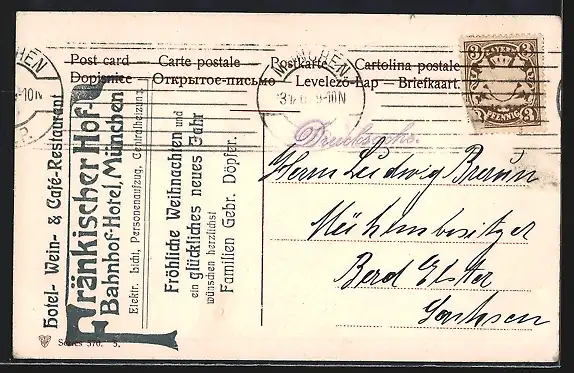 Post card — Carte postale — Postkarte — Cartolina postale
Dopisnice — Открытое-письмо — Levelező-Lap — Briefkarte.
MÜNCHEN
BAYERN
3 3
PFENNIG
3 3
Drucksache.
Herrn Ludwig
Mühlenbesitzer
Bad Elster
Sachsen
Hotel- Wein- & Café-Restaurant
Fränkischer Hof-
Bahnhof-Hotel, München
Elektr. Licht, Personenaufzug, Centralheizung.
Fröhliche Weihnachten und
ein glückliches neues Jahr
wünschen herzlichst
Familien Gebr. Döpfer.
Series 370.